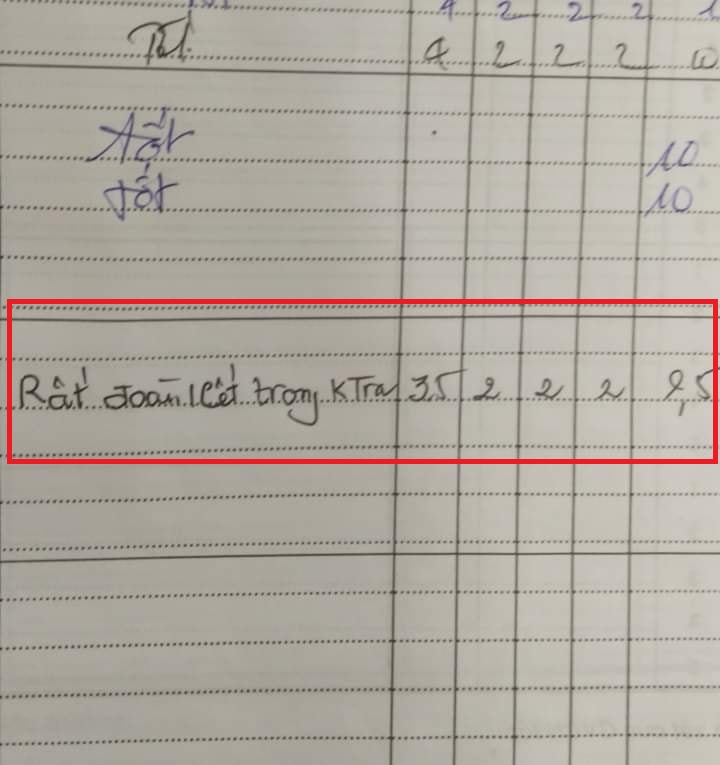 4 2 2 2 1
Tốt. 4 2 2 2 10
Tốt 10
tốt 10
Rất đoàn kết trong KTra 3,5 2 2 2 9,5